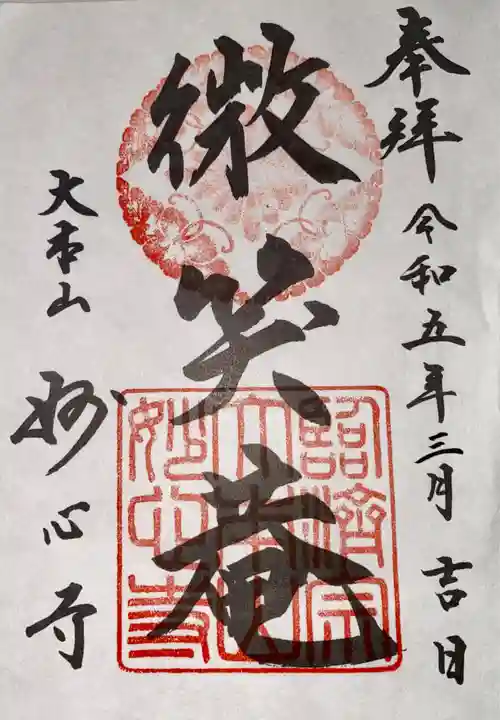 奉拝 令和五年三月 吉日
微笑庵
大本山 妙心寺
臨済宗
大本山
妙心寺